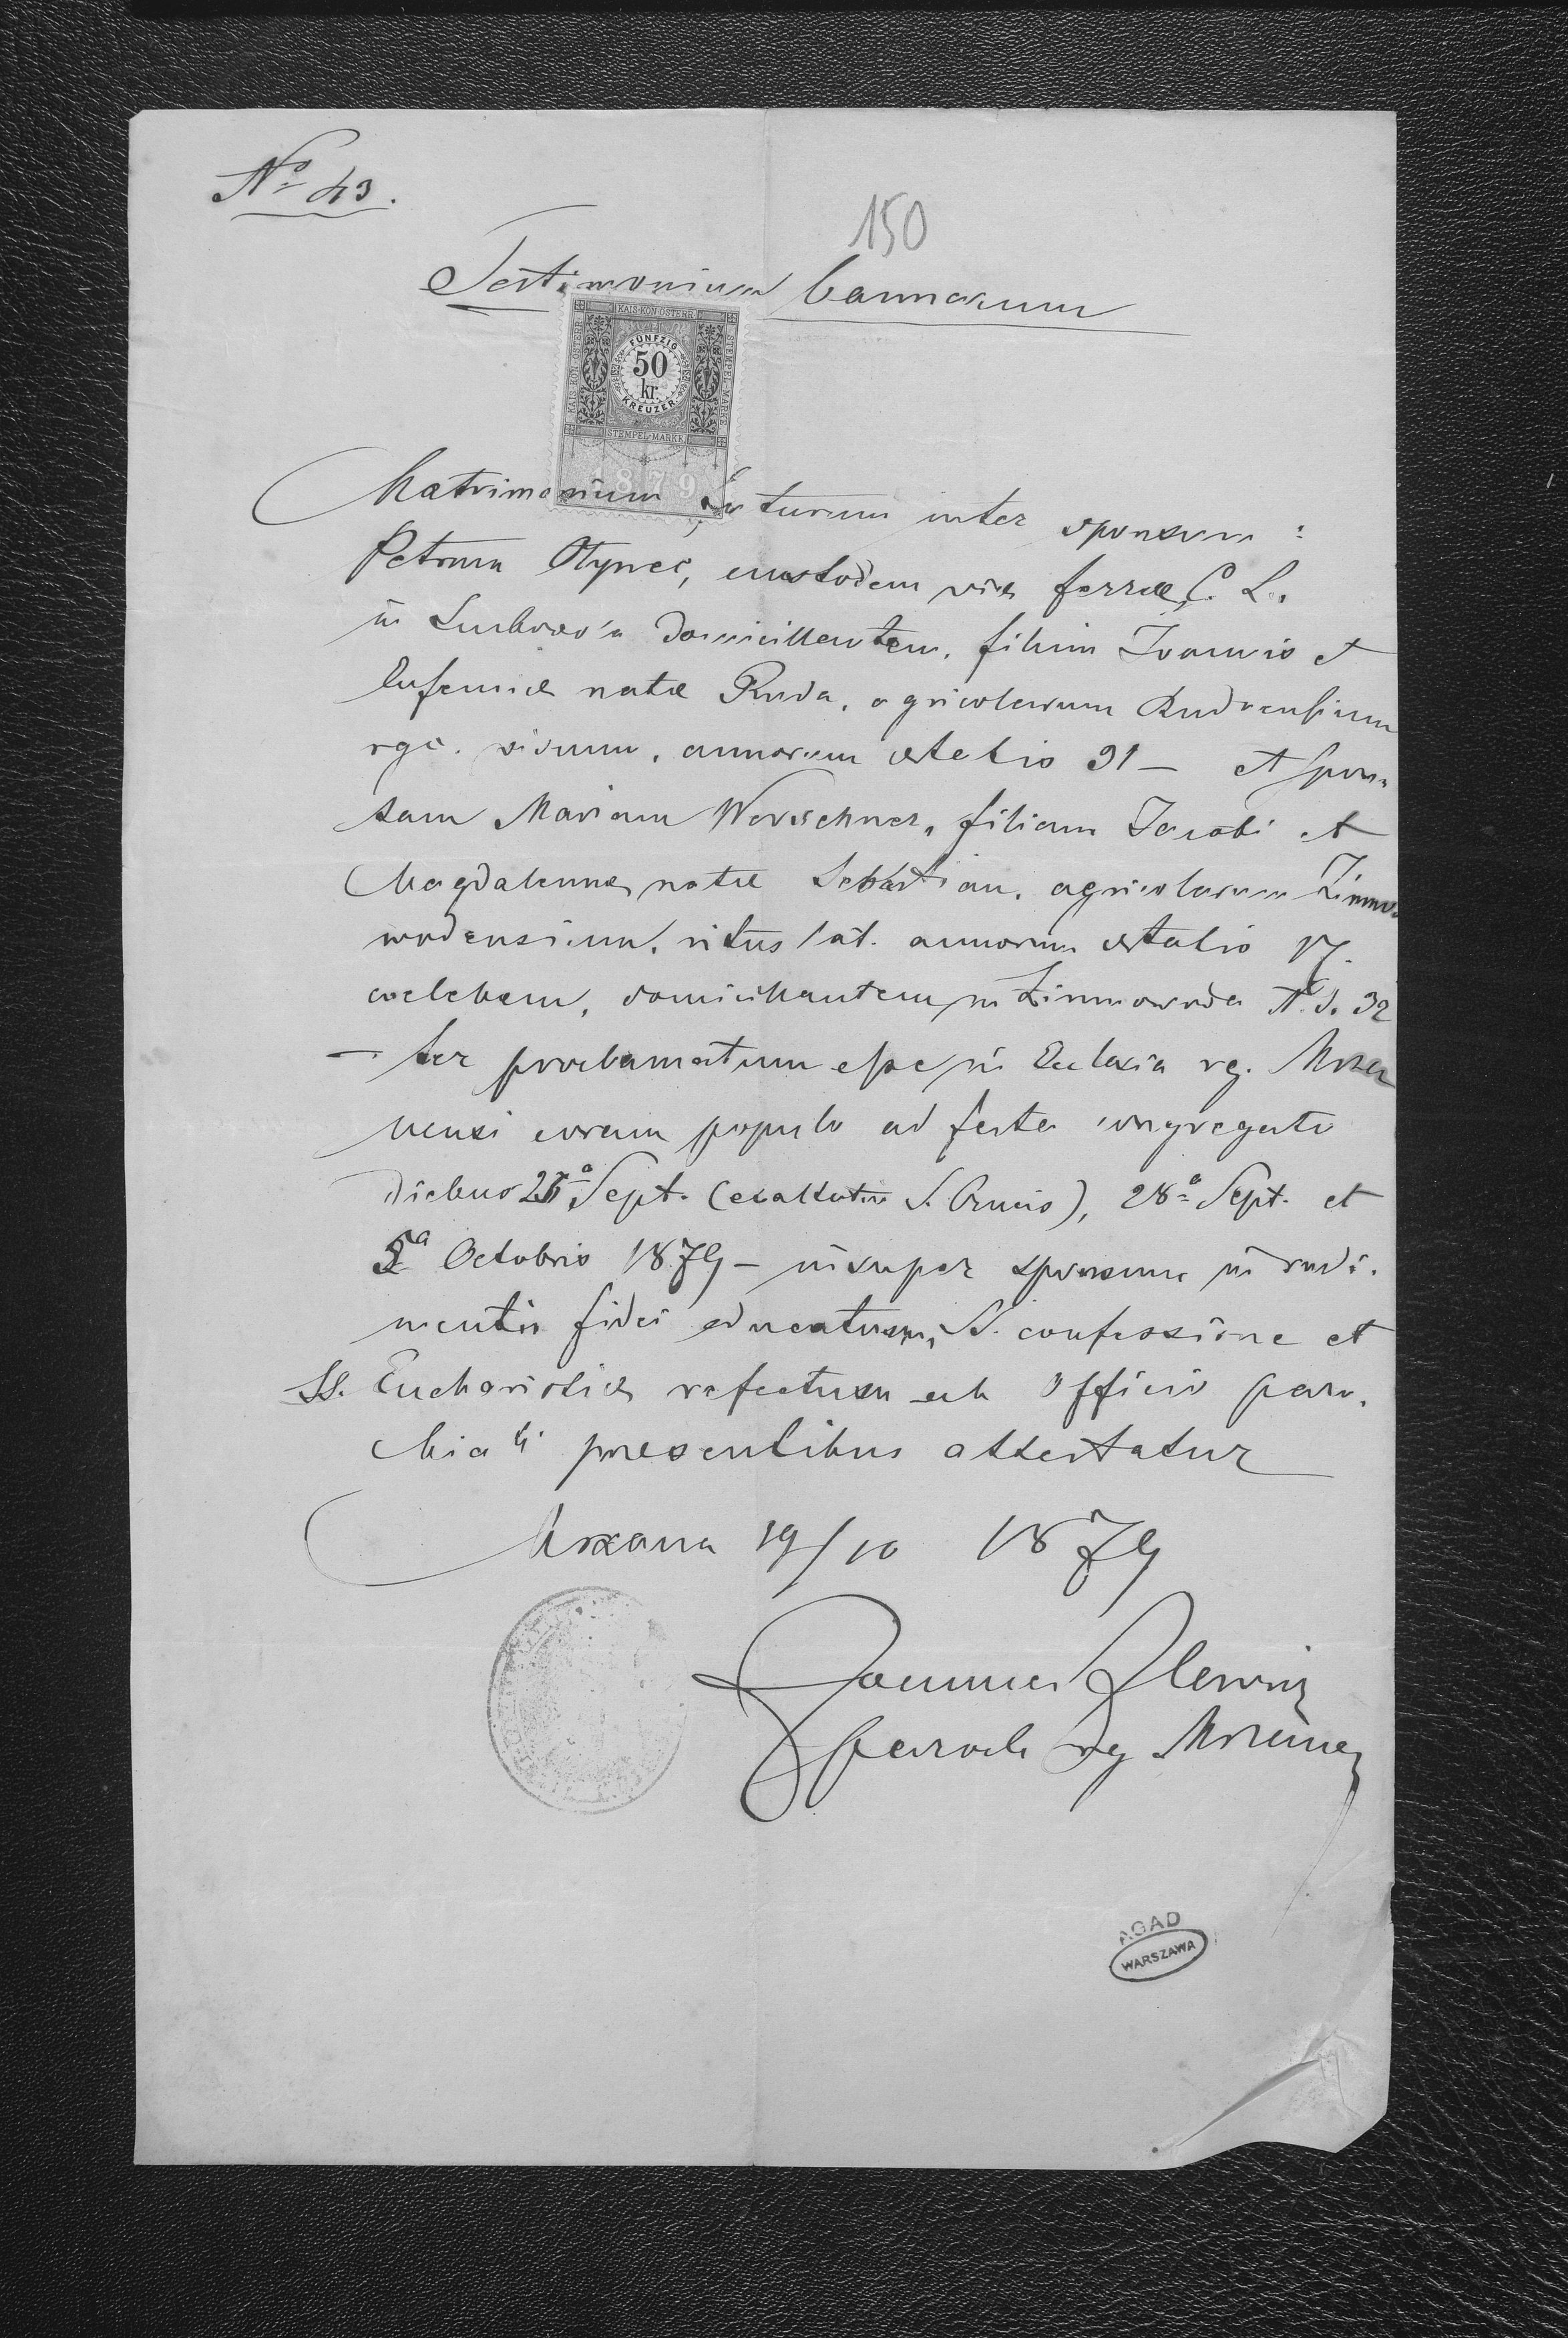 No 43.
150
Testimonium bannorum
KAIS. KÖN. ÖSTERR.
STEMPEL-MARKE
KAIS. KÖN. ÖSTERR.
FÜNFZIG
50
kr.
KREUZER
STEMPEL-MARKE
1879
Matrimonium futurum inter sponsum :
Petrum Olynec, custodem viæ ferræ, C. L.
in domicilliantem, filium Joannis et
Eufemiæ natæ Ruda, agricolarum
rgc. viduum, annorum ætatis 31 — et spon-
sam Mariam Werschner, filiam Jacobi et
Magdalennæ natæ Sebastian, agricolarum Zimno-
wodensium, ritus lat. annorum ætatis 17.
cælebem, domiciliantem in Zimnowoda N. d. 32
— ter proclamatum esse in Eclesia rg. Mrza
nensi coram populo ad festa congregato
diebus Sept. (exaltatio S. Crucis), 28ª Sept. et
Octobris 1879 — insuper sponsum in rudi-
mentis fidei educatum, S. confessione et
SS. Eucharistiæ refectum ab Officio paro-
chiali presentibus attestatur
Mrzana 19/10 1879
Joannes
paroch rg
AGAD
WARSZAWA